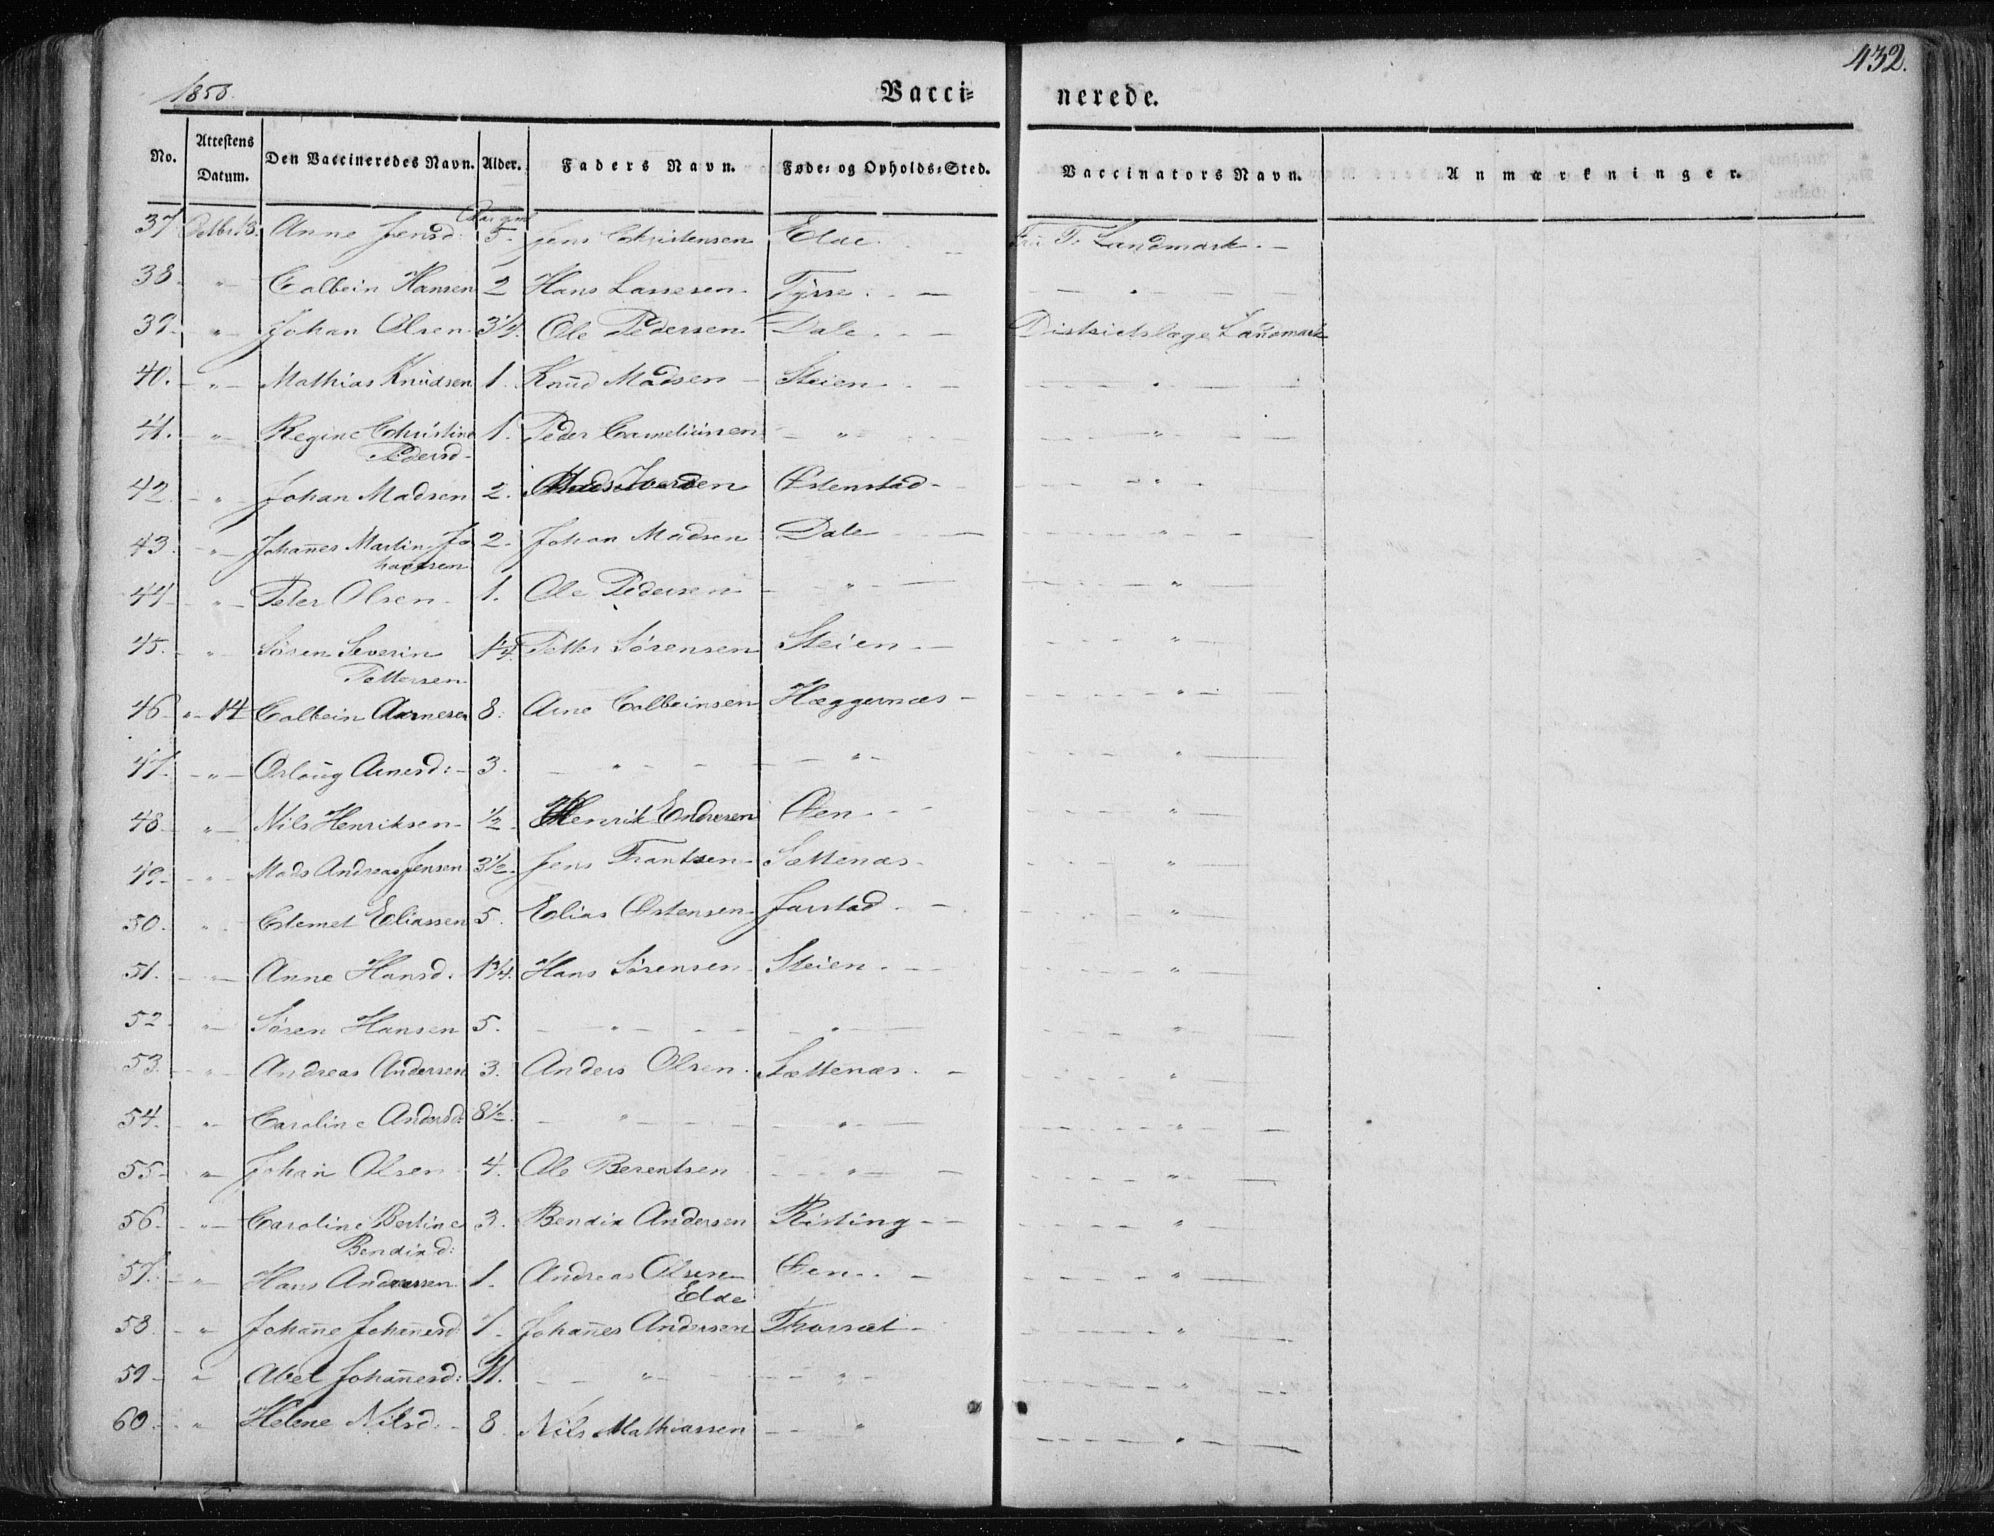 432.
1850.
Vacci=
nerede.
No. Attestens Datum. Den Vaccineredes Navn. Alder. Faders Navn. Føde= og Opholds=Sted. Vaccinators Navn. Anmærkninger.
Aar gml
37 Octbr 13. Anne Jensd: 5. Jens Christensen Elde. - Frü T. Landmark. -
38. - " - Colbein Hansen 2 Hans Lassesen. - - " -
39. - " - Johan Olsen. 3¼. Ole Pedersen Dale. - Districtslæge Landmark
40. - " - Mathias Knüdsen 1. Knüd Madsen - Steien. - - " -
41. - " - Regine Christine 1. Peder Corneliüssen - " - - " -
Pedersd.
42. - " - Johan Madsen 2. Mads Iversen Østenstad - - " -
43. - " - Johan̅es Martin Jo 2. Johan Madsen Dale - - " -
hansen
44 - " - Peter Olsen. 1. Ole Pedersen - " - - " -
45. - " Søren Severin 1¼. Petter Sørensen Steien. - - " -
Pettersen
46 " - 14 Colbein Arnesen 8. Arne Colbeinsen Hæggernæs - - " -
47. - " - Orloüg Arnesd: - 3. - " - - " - - " -
48 - " - Nils Henriksen - ½. Henrik Endresen Øen. - - " -
49. - " - Mads Andreas Jensen 3½. Jens Frantsen - Sættenæs - - " -
50. " Clemet Eliassen 5. Elias Østensen. Jarstad. - - " -
51. - " - Anne Hansd. 1¾. Hans Sørensen. Steien. - - " -
52. - " - Søren Hansen 5. - " - - " - - " -
53. - " - Andreas Andersen 3. Anders Olsen. Sættenæs. - - " -
54. - " - Caroline Andersd: 8½. - " - - " - - " -
55 - " - Johan Olsen 4. Ole Berentsen - " - - " -
56. - " - Caroline Bertine 3. Bendix Andersen Risting - - - " -
Bendixd:
57. - " Hans Andreassen 1. Andreas Olsen Øen. - - " -
Elde
58. - " Johan̅e Johan̅esd 1. Johan̅es Andersen - " -
59 - " Abel Johan̅esd: 11. - " - - " - - " -
60. - " Helene Nilsd. - 8. Nils Mathiassen - " - " -